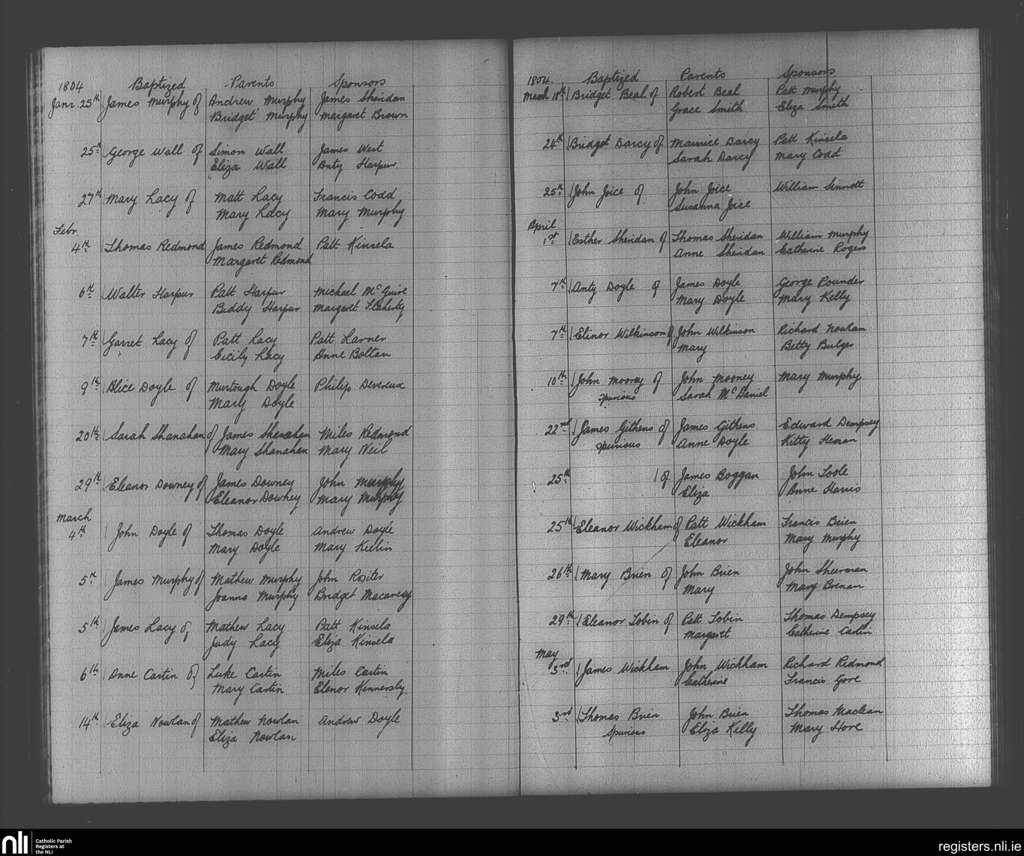 1804 Baptized Parents Sponsors
Janr 25th James Murphy of Andrew Murphy James Sheridan
Bridget Murphy Margaret Brown
25th George Wall of Simon Wall James West
Eliza Wall Anty Harpur
27th Mary Lacy of Matt Lacy Francis Codd
Mary Lacy Mary Murphy
Febr.
4th Thomas Redmond James Redmond Patt Kinsela
Margaret Redmond
6th Walter Harpur Patt Harpur Michael McGuire
Biddy Harpur Margaret Flaherty
7th Garret Lacy of Patt Lacy Patt Larner
Cicily Lacy Anne Boltan
9th Alice Doyle of Murtough Doyle Philip Devereux
Mary Doyle
20th Sarah Shanahan of James Shanahan Miles Redmond
Mary Shanahan Mary Neil
29th Eleanor Downey of James Downey John Murphy
Eleanor Downey Mary Murphy
March
4th John Doyle of Thomas Doyle Andrew Doyle
Mary Doyle Mary
5th James Murphy of Mathew Murphy John Rositer
Joanna Murphy Bridget
5th James Lacy of Mathew Lacy Patt Kinsela
Judy Lacy Eliza Kinsela
6th Anne Cartin of Luke Cartin Miles Cartin
Mary Cartin Elenor Kennersly
14th Eliza Nowlan of Mathew Nowlan Andrew Doyle
Eliza Nowlan
1804 Baptized Parents Sponsors
March 18th Bridget Beal of Robert Beal Patt Murphy
Grace Smith Eliza Smith
24th Bridget Darcy of Maurice Darcy Patt Kinsela
Sarah Darcy Mary Codd
25th John Joice of John Joice William Sinnott
Susanna Joice
April
1st Esther Sheridan of Thomas Sheridan William Murphy
Anne Sheridan Catherine Rogers
7th Anty Doyle of James Doyle George Pounder
Mary Doyle Mary Kelly
7th Elinor Wilkinson of John Wilkinson Richard Noahan
Mary Betty Bulger
10th John Mooney of John Mooney Mary Murphy
Spurious Sarah McDaniel
22nd James Githens of James Githens Edward Dempsey
Spurious Anne Doyle Kitty Henan
25th of James Boggan John Toole
Eliza Anne Harris
25th Eleanor Wickham of Patt Wickham Francis Brien
Eleanor Mary Murphy
26th Mary Brien of John Brien John Sheerman
Mary Mary Brenan
29th Eleanor Tobin of Patt Tobin Thomas Dempsey
Margaret Catherine Cartin
May
3rd James Wickham John Wickham Richard Redmond
Catherine Francis Gore
3rd Thomas Brien John Brien Thomas Maclean
Spurious Eliza Kelly Mary Hore
nli Catholic Parish
Registers at
the NLI
registers.nli.ie